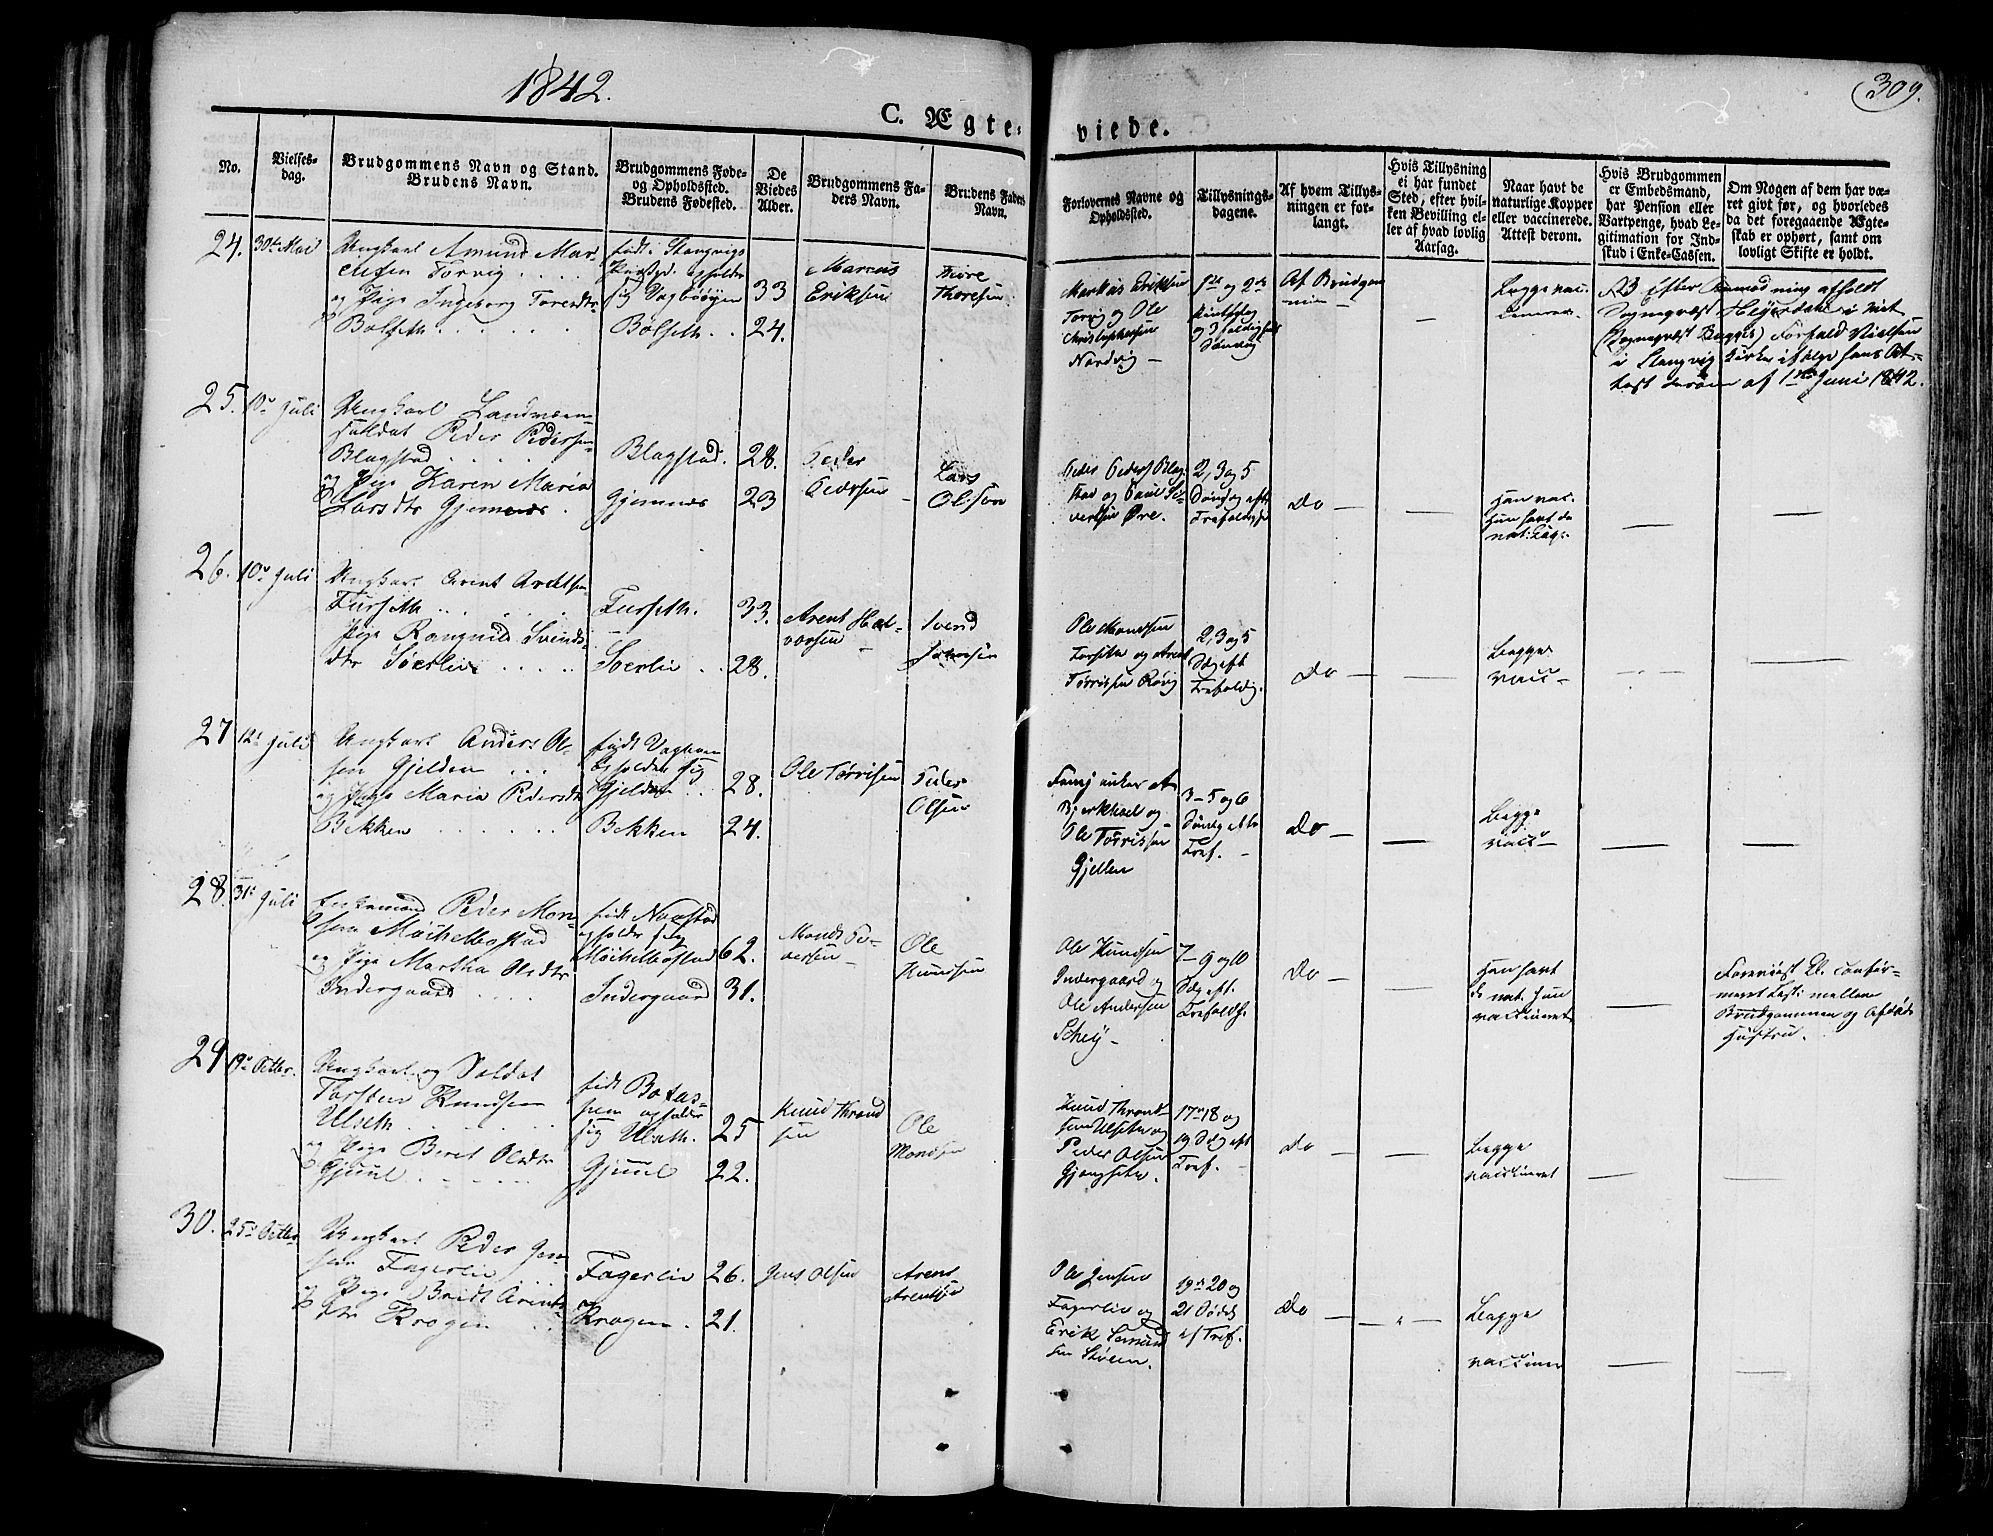 1842.
309.
C. Ægte-
viede.
No.
Vielses-
dag.
Brudgommens Navn og Stand.
Brudens Navn.
Brudgommens Føde-
og Opholdssted.
Brudens Fødested.
De
Viedes
Alder.
Brudgommens Fa-
ders Navn.
Brudens Faders
Navn.
Forlovernes Navne og
Opholdssted.
Tillysnings-
dagene.
Af hvem Tillys-
ningen er for-
langt.
Hvis Tillysning
ei har fundet
Sted, efter hvil-
ken Bevilling el-
ler af hvad lovlig
Aarsag.
Naar havt de
naturlige Kopper
eller vaccinerede.
Attest derom.
Hvis Brudgommen
er Embedsmand,
har Pension eller
Vartpenge, hvad Le-
gitimation for Ind-
skud i Enke-Cassen.
Om Nogen af dem har væ-
ret givt før, og hvorledes
da det foregaaende Ægte-
skab er ophørt, samt om
lovligt Skifte er holdt.
24. 30te Mai
Ungkarl Amund Mar-
cusen Torvig
og Pige Ingeborg Toresdtr
Bolseth
født Stangvigs
Præstgd. opholder
sig Vagbøøyen
Bolseth
33
24.
Marcus
Eriksen
Thore
Thoresen
Markus Eriksen
Torvig og Ole
Christophersen
Nordvig
1ste og 2de
og 3foldigheds
Søndag
Af Brudgom-
men
Begge vac-
cineret
NB Efter Anmodning afholdt
Sognepræst Heyerdahl i mit
(Sognepræst Bugges) Forfald Vielsen
i Stangvig Kirke ifølge hans At-
test derom af 1ste Juni 1842.
25. 10de Juli
Ungkarl Landværn-
soldat Peder Pedersen
Blagstad
og Pige Karen Maria
Larsdtr Gjemnes
Blagstad.
Gjemnes
28.
23
Peder
Pedersen
Lars
Olsson
Peder Peders Blag-
stad og Paul Si-
vertsen Øre.
2, 3 og 5
Sønd og eft
Trefoldigh
Do
Han vac.
Hun havt de
nat: Kop:
26. 10de Juli
Ungkarl Arent Arentsen
Furseth
Pige Rangnild Svends-
dtr Søerlie
Furseth.
Soerlie
33.
28.
Arent Hal-
vorsen
Svend
Johnsen
Ole Mondsen
Furseth og Arent
Tørrissen Røvig
2, 3 og 5
Sdg eft
Trefoldig.
Do
Begge
vacc
27 12te Juli
Ungkarl Anders Ol-
sen Gjelden
og Pige Maria Pedersdtr
Bekken
født Vagbøen
opholder sig
Gjelden
Bekken
28.
24.
Ole Tørrisen
Peder
Olsen
Bjerkestrand og
Ole Tørrissen
Gjelden
3-5 og 6
Søndg efter
Tref.
Do
Begge
vacc
28. 31te Juli
Enkemand Peder Mon-
sen Meisalbostad
og Pige Martha Olsdtr
Indergaard
født Naastad
opholder sig
Indergaard
62.
31.
Monds Pe-
dersen
Ole
Knudsen
Ole Knudsen
Indergaard og
Ole Andersen
Schey
7-9 og 10
Sdg eft.
Trefoldh.
Do
Han havt
de nat. Hun
vaccineret
mellem
Brudgommen og Afdøde
Hustru.
29 19de Octbr.
Ungkarl og Soldat
Torsten Knudsen
Ulseth
og Pige Beret Olsdtr
Gjuul
født Botas-
sen opholder
sig Ulseth.
Gjuul
25
22.
Knud Thrond
sen
Ole
Mondsen
Knud Thrond-
sen Ulseth og
Peder Olsen
Gjengseth.
17de 18 og
19 Sdg eft
Tref.
Do
Begge
vaccineret
30. 25de Octbr
Ungkarl Peder Jen-
sen Fagerlie
og Pige Bridt Arents-
dtr Kragen
Fagerlie
og
Kragen.
26.
21.
Jens Olsen
Arent
Arentsen
Ole Jensen
Fagerlie og
Erik Semund
sen Støen.
19de 20 og
21 Sødg
ef Tref.
Do
Begge
vacciner